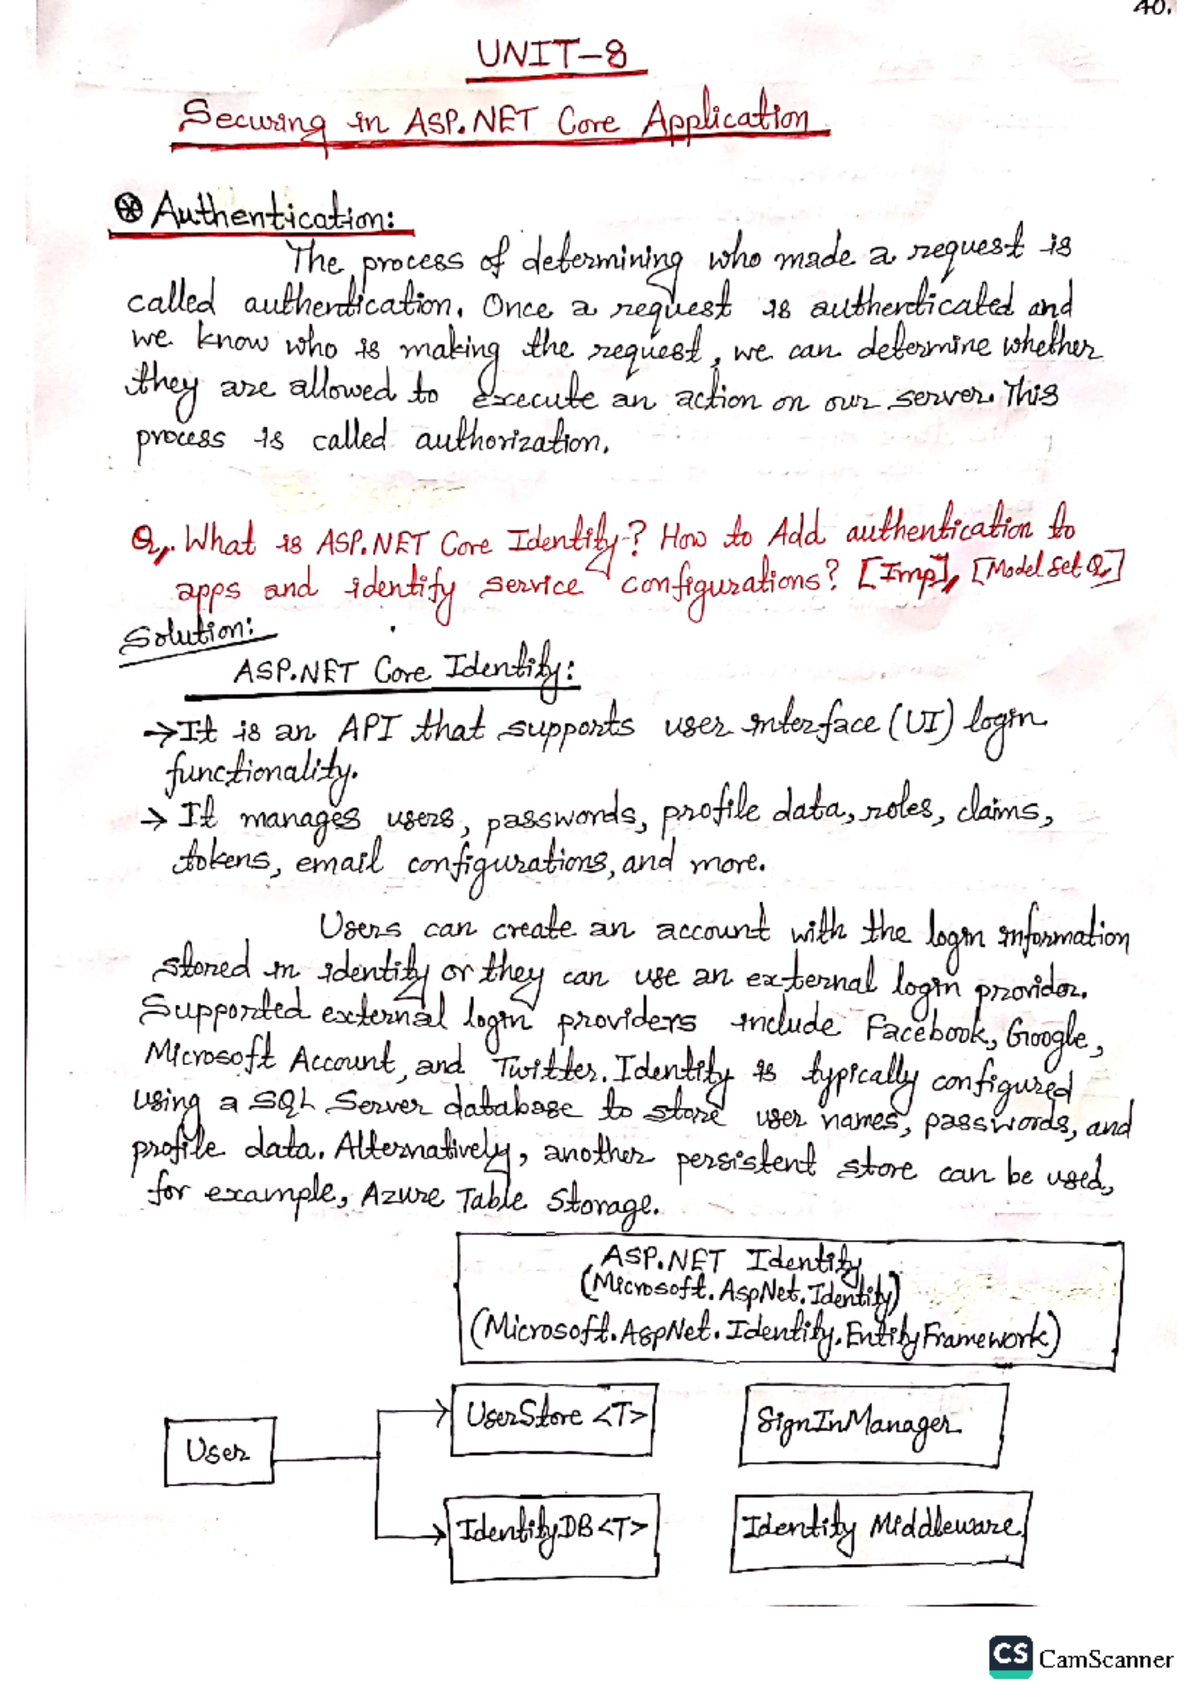 40.
UNIT-8
Securing in ASP.NET Core Application
⊛ Authentication:
The process of determining who made a request is
called authentication. Once a request is authenticated and
we know who is making the request, we can determine whether
they are allowed to execute an action on our server. This
process is called authorization.
Q. What is ASP.NET Core Identity? How to Add authentication to
apps and identify service configurations? [Imp], [Model Set Q]
Solution:
ASP.NET Core Identity:
→ It is an API that supports user interface (UI) login
functionality.
→ It manages users, passwords, profile data, roles, claims,
tokens, email configurations, and more.
Users can create an account with the login information
stored in identity or they can use an external login provider.
Supported external login providers include Facebook, Google,
Microsoft Account, and Twitter. Identity is typically configured
using a SQL Server database to store user names, passwords, and
profile data. Alternatively, another persistent store can be used,
for example, Azure Table Storage.
ASP.NET Identity
(Microsoft.AspNet.Identity)
(Microsoft.AspNet.Identity.EntityFramework)
User
UserStore <T>
SignInManager
IdentityDB <T>
Identity Middleware
CS CamScanner